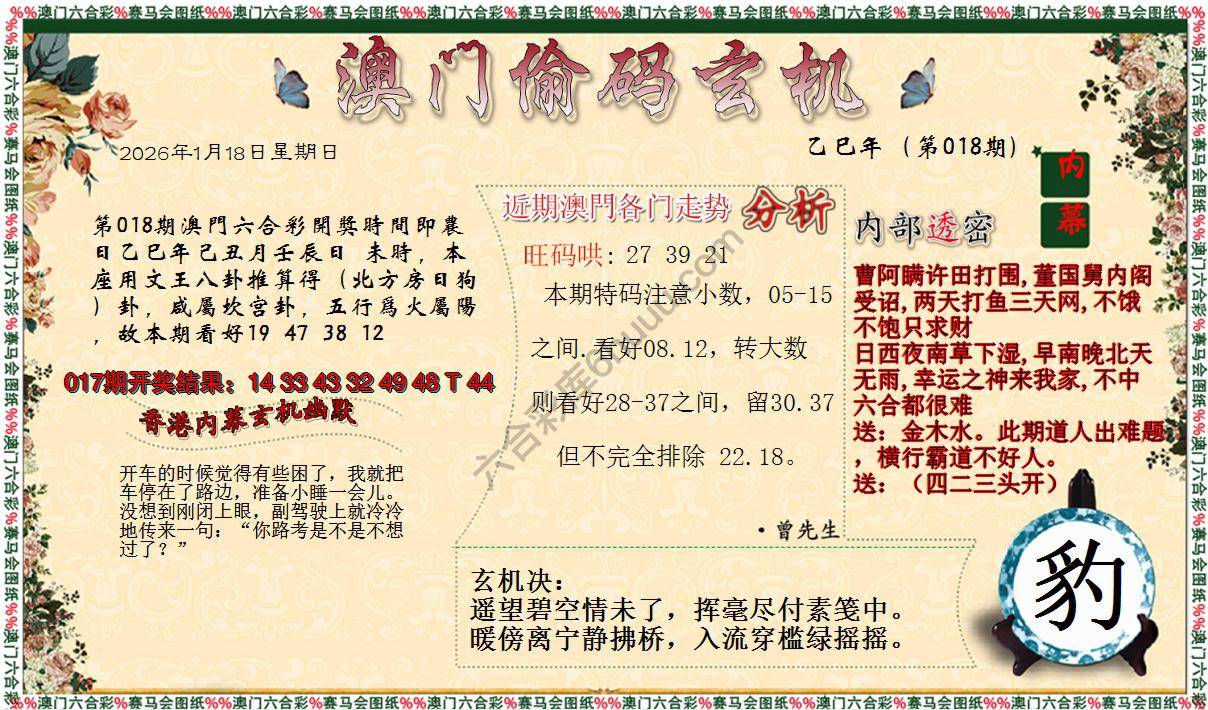 %%澳门六合彩%赛马会图纸%%澳门六合彩%赛马会图纸%%澳门六合彩%赛马会图纸%%澳门六合彩%赛马会图纸%%澳门六合彩%赛马会图纸%%澳门六合彩%赛马会图纸%%
澳门偷码玄机
2026年1月18日星期日
乙巳年（第018期）
内
幕
第018期澳門六合彩開獎時間即農
日乙巳年己丑月壬辰日 未時，本
座用文王八卦推算得（北方房日狗
）卦，咸屬坎宫卦，五行爲火屬陽
，故本期看好19 47 38 12
017期开奖结果：14 33 43 32 49 48 T 44
香港内幕玄机幽默
开车的时候觉得有些困了，我就把
车停在了路边，准备小睡一会儿。
没想到刚闭上眼，副驾驶上就冷冷
地传来一句：“你路考是不是不想
过了？”
近期澳門各门走势 分析
旺码哄: 27 39 21
本期特码注意小数，05-15
之间.看好08.12，转大数
则看好28-37之间，留30.37
但不完全排除 22.18。
·曾先生
内部透密
曹阿瞒许田打围,董国舅内阁
受诏,两天打鱼三天网,不饿
不饱只求财
日西夜南草下湿,早南晚北天
无雨,幸运之神来我家,不中
六合都很难
送：金木水。此期道人出难题
，横行霸道不好人。
送：（四二三头开）
玄机决：
遥望碧空情未了，挥毫尽付素笺中。
暖傍离宁静拂桥，入流穿槛绿摇摇。
豹